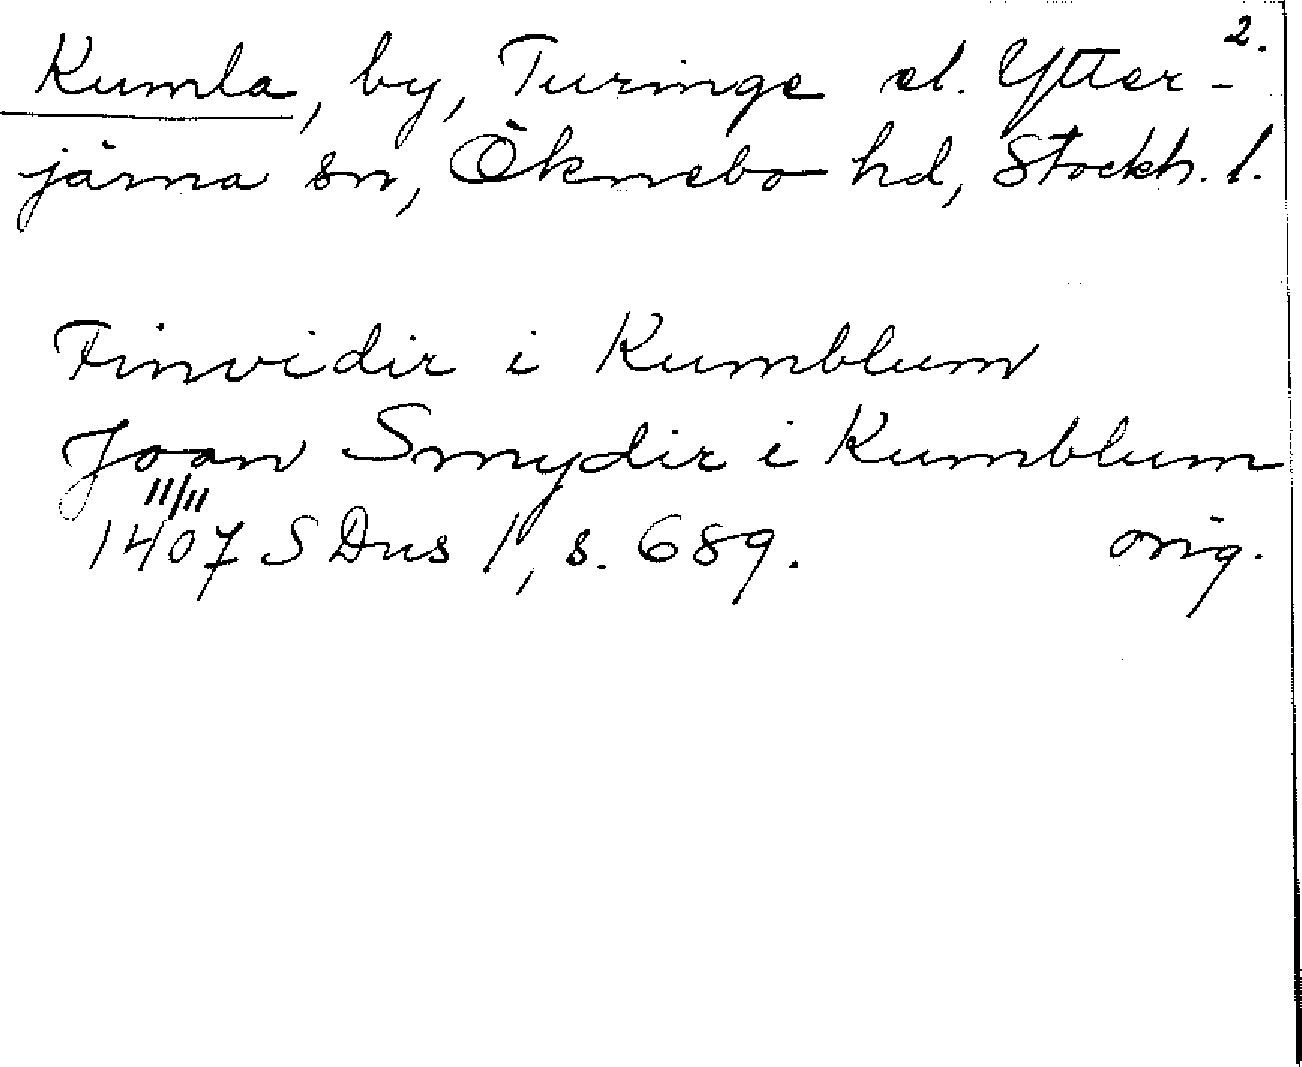 2.
Kumla, by, Turinge el. Ytter-
järna sn, Öknebo hd, Stockh. l.
Finvidir i Kumblum
Joan Smydir i Kumblum
11/11
1407 SDns 1, s. 689. orig.